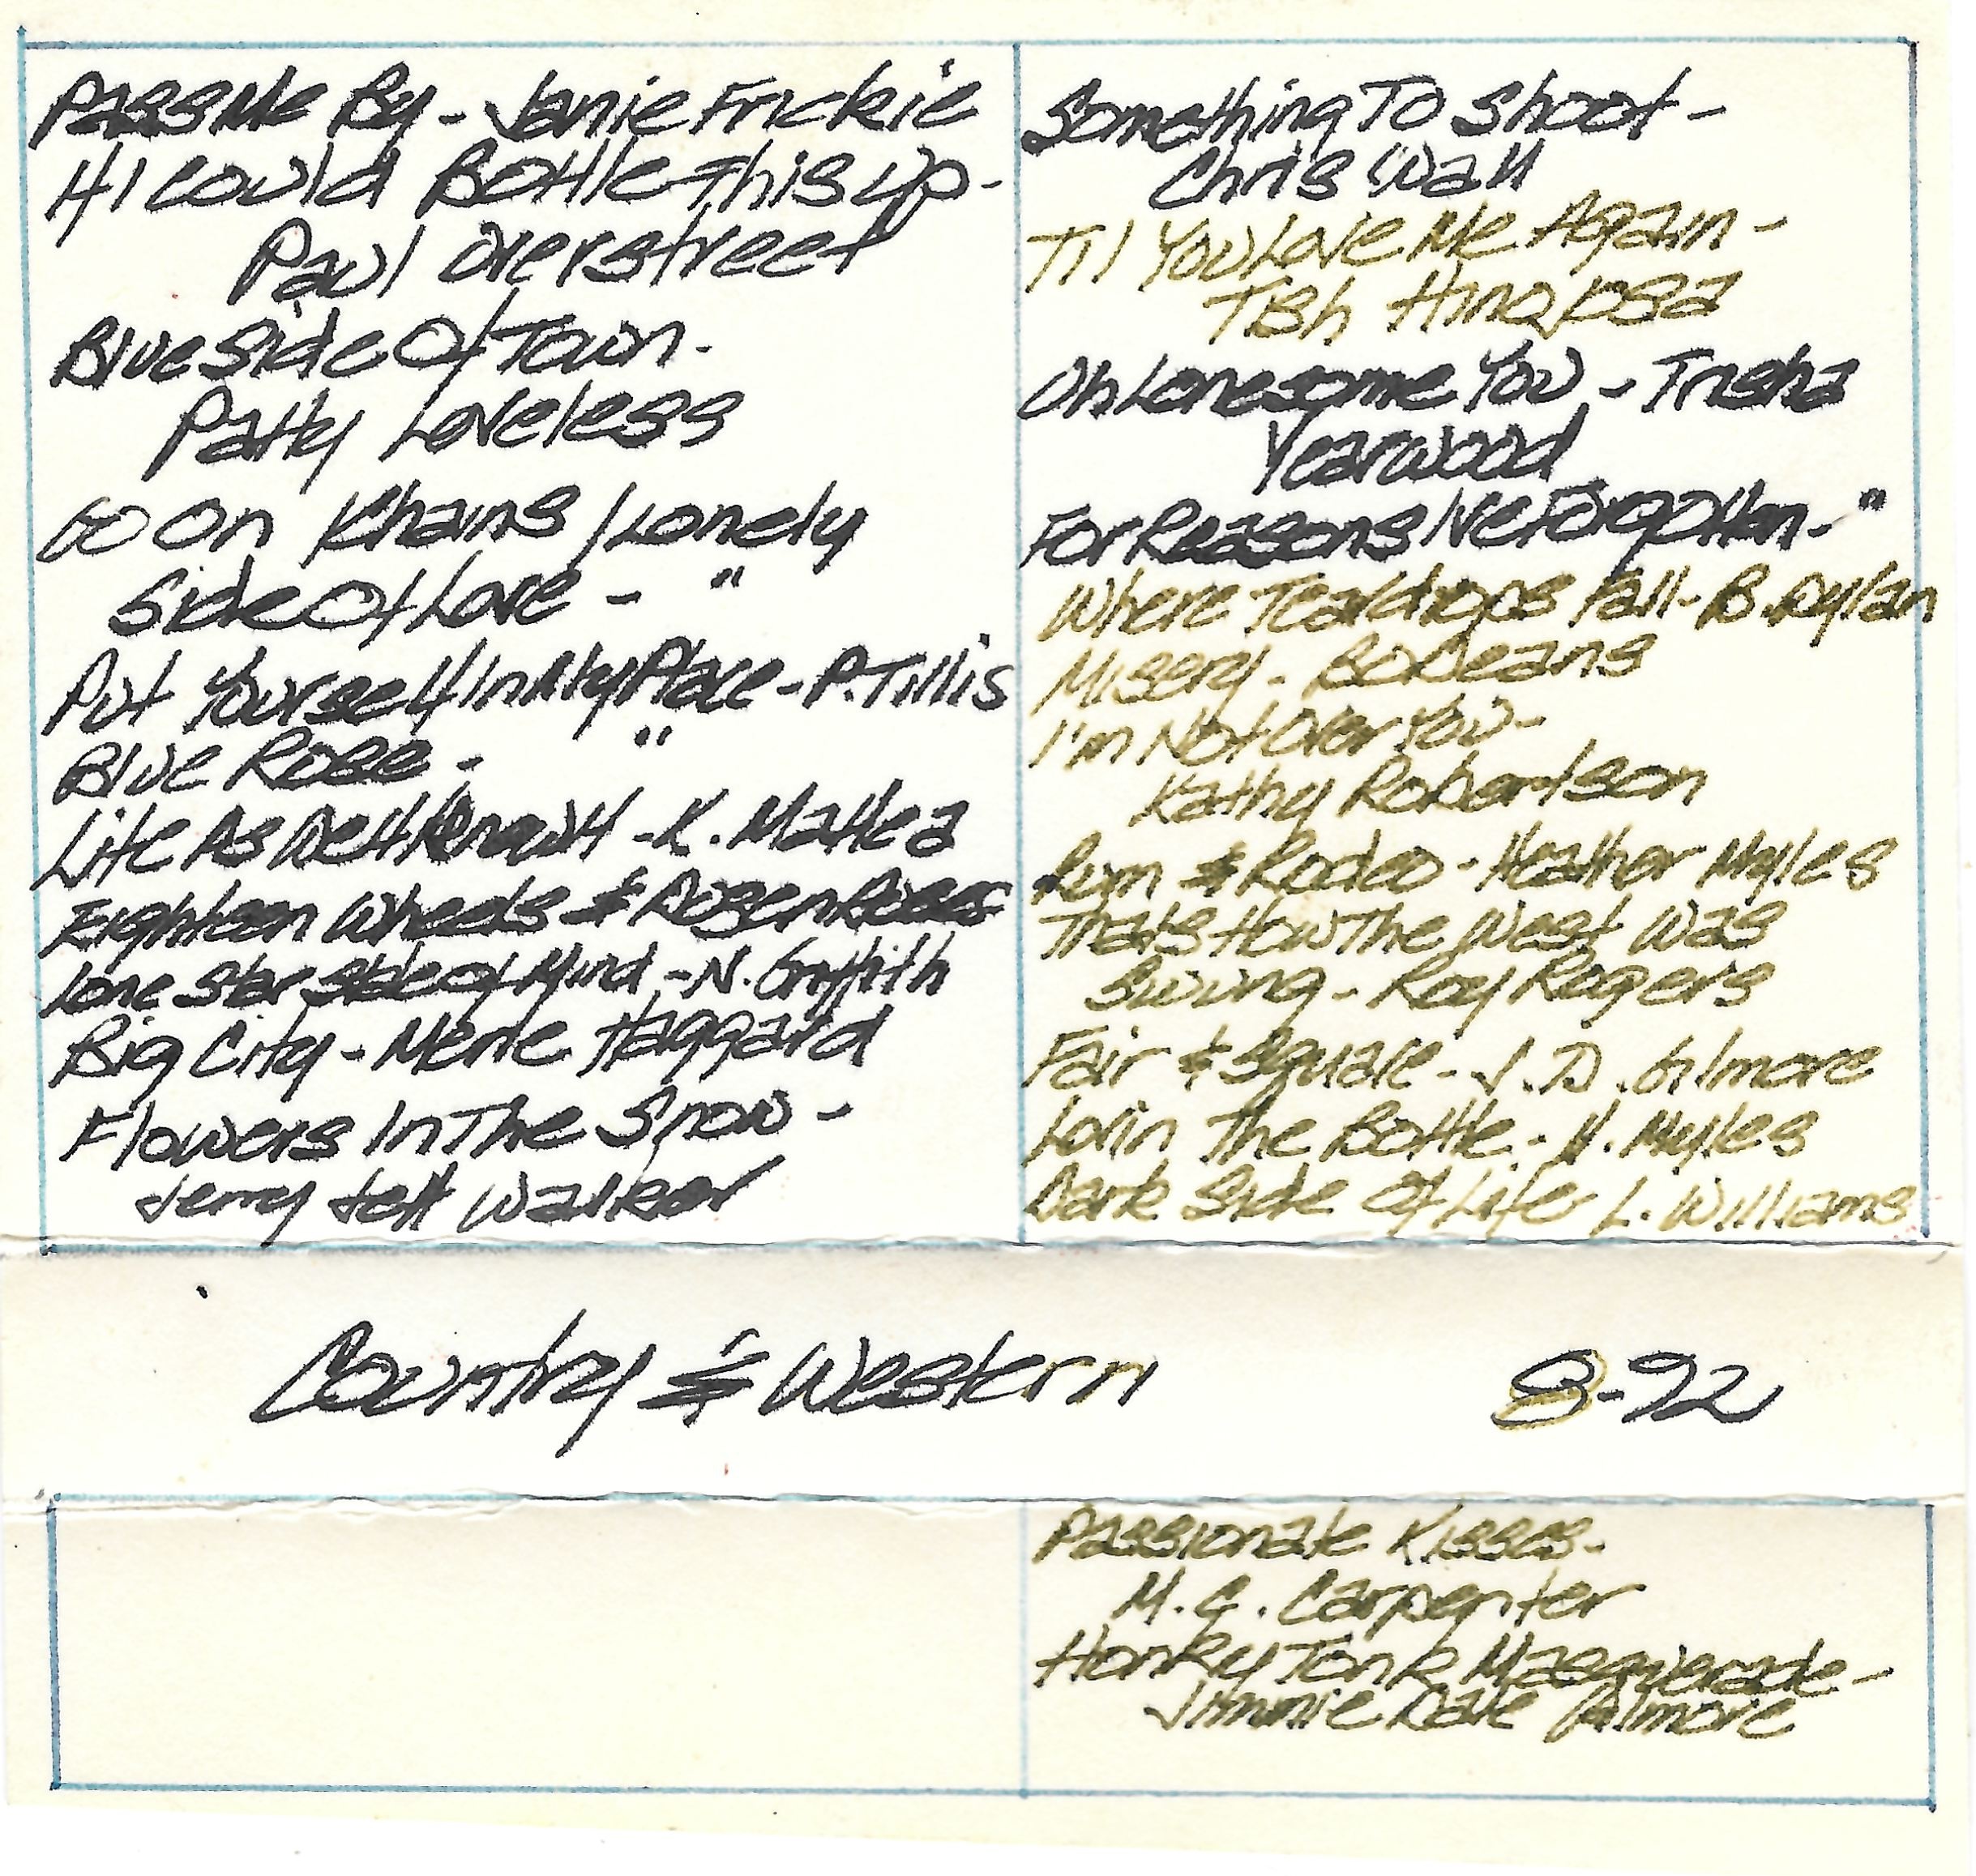 Pass Me By - Janie Frickie
If I Could Bottle This Up -
Paul Overstreet
Blue Side Of Town -
Patty Loveless
Go On / Chains / Lonely
Side Of Love - "
Put Yourself In My Place - P. Tillis
Blue Rose - "
Life As We Knew It - K. Mattea
Eighteen Wheels & Dozen Roses
Lone Star State of Mind - N. Griffith
Big City - Merle Haggard
Flowers In The Snow -
Jerry Jeff Walker
Something To Shoot -
Chris Wall
Til You Love Me Again -
Tish Hinojosa
Oh Lonesome You - Trisha
Yearwood
For Reasons I've Forgotten - "
Where Teardrops Fall - B. Dylan
Misery - BoDeans
I'm Not Over You -
Kathy Robertson
Rum & Rodeo - Heather Myles
Thats How The West Was
Swung - Roy Rogers
Fair & Square - J. D. Gilmore
Lovin The Bottle - H. Myles
Dark Side Of Life L. Williams
Country & Western 8-92
Passionate Kisses -
M. C. Carpenter
Honky Tonk Masquerade -
Jimmie Dale Gilmore